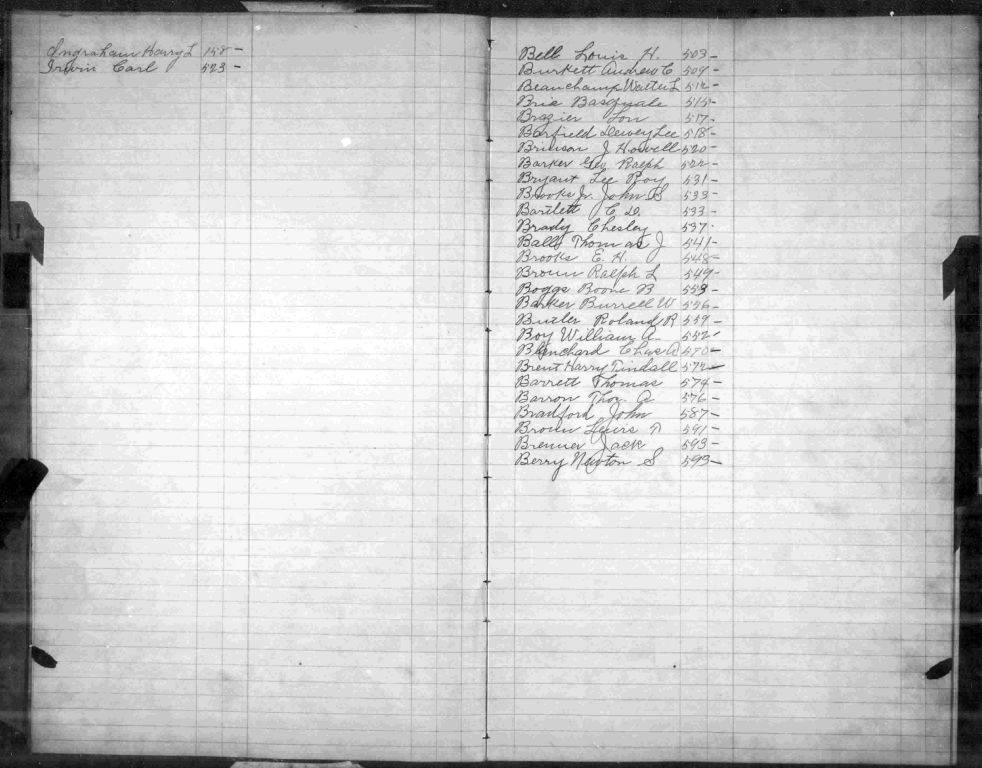 Ingraham Harry L 158 -
Irwin Carl 523 -
Bell Louis H. 503 -
Burkett Andrew C 509 -
Beauchamp Walter L 512 -
Brie Basquale 515 -
Brazier Lon 517 -
Barfield Dewey Lee 518 -
Brinson J Howell 520 -
Barker Geo Ralph 522 -
Bryant Lee Roy 531 -
Brooks Jr. John S 533 -
Bartlett C. D. 533 -
Brady Chesley 537 -
Ball Thomas J 541 -
Brooks E. H. 548 -
Brown Ralph L 549 -
Boggs Boone B 553 -
Barker Burrell W 556 -
Butler Roland R 559 -
Boy William A. 552 -
Blanchard Chas A 570 -
Brent Harry Tindall 572 -
Barrett Thomas 574 -
Barron Thos. A 576 -
Bradford John 587 -
Brown Lewis 591 -
Brenner Jack 593 -
Berry Newton S 599 -